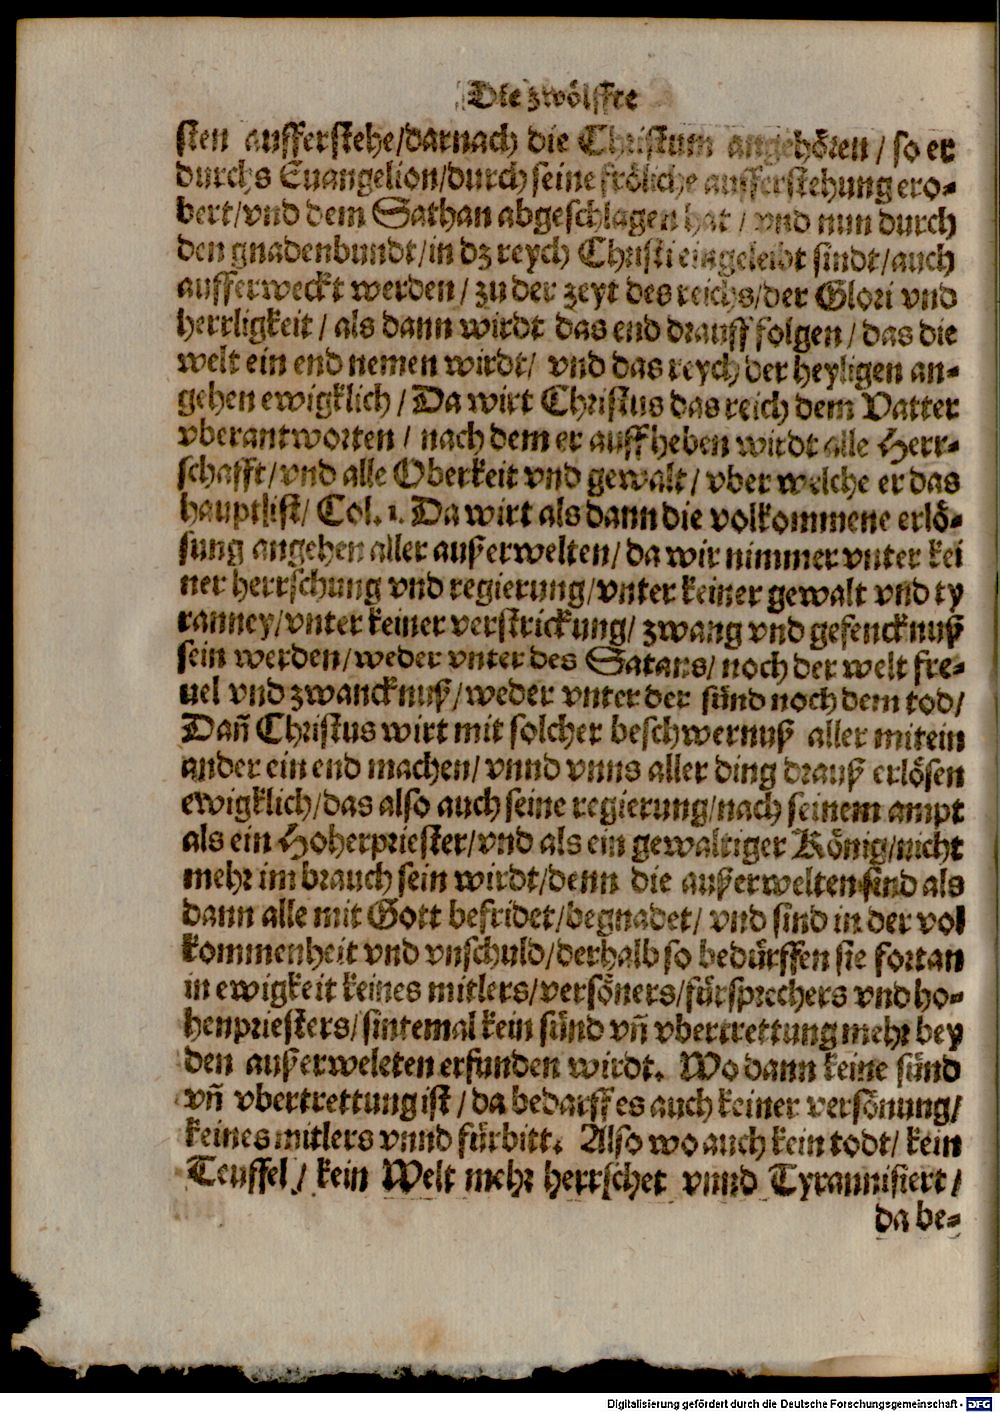 Die zwölffte
sten aufferstehe/darnach die Christum angehören / so er
durchs Euangelion/durch seine fröliche aufferstehung ero-
bert/vnd dem Sathan abgeschlagen hat / vnd nun durch
den gnadenbundt/in dz reych Christi eingeleibt sindt/auch
aufferweckt werden / zu der zeyt des reichs/der Glori vnd
herrligkeit / als dann wirdt das end drauff folgen / das die
welt ein end nemen wirdt/ vnd das reych der heyligen an-
gehen ewigklich / Da wirt Christus das reich dem Vatter
vberantworten / nach dem er auffheben wirdt alle Herr-
schafft/vnd alle Oberkeit vnd gewalt / vber welche er das
haupt ist/ Col. 1. Da wirt als dann die volkommene erlö-
sung angehen aller außerwelten/ da wir nimmer vnter kei
ner herrschung vnd regierung/vnter keiner gewalt vnd ty
ranney/vnter keiner verstrickung/ zwang vnd gefencknuß
sein werden/weder vnter des Satans/ noch der welt fre-
uel vnd zwancknuß/weder vnter der sünd noch dem tod/
Dañ Christus wirt mit solcher beschwernuß aller mitein
ander ein end machen/ vnnd vnns aller ding drauß erlösen
ewigklich/das also auch seine regierung/nach seinem ampt
als ein Hoherpriester/vnd als ein gewaltiger König/nicht
mehr im brauch sein wirdt/denn die außerwelten sind als
dann alle mit Gott befridet/begnadet/ vnd sind in der vol
kommenheit vnd vnschuld/derhalb so bedürffen sie fortan
in ewigkeit keines mitlers/versöners/fürsprechers vnd ho-
henpriesters/sintemal kein sünd vñ vbertrettung mehr bey
den außerweleten erfunden wirdt. Wo dann keine sünd
vñ vbertrettung ist / da bedarff es auch keiner versönung/
keines mitlers vnnd fürbitt. Also wo auch kein todt/ kein
Teuffel / kein Welt mehr herrschet vnnd Tyrannisiert /
da be-
Digitalisierung gefördert durch die Deutsche Forschungsgemeinschaft - DFG